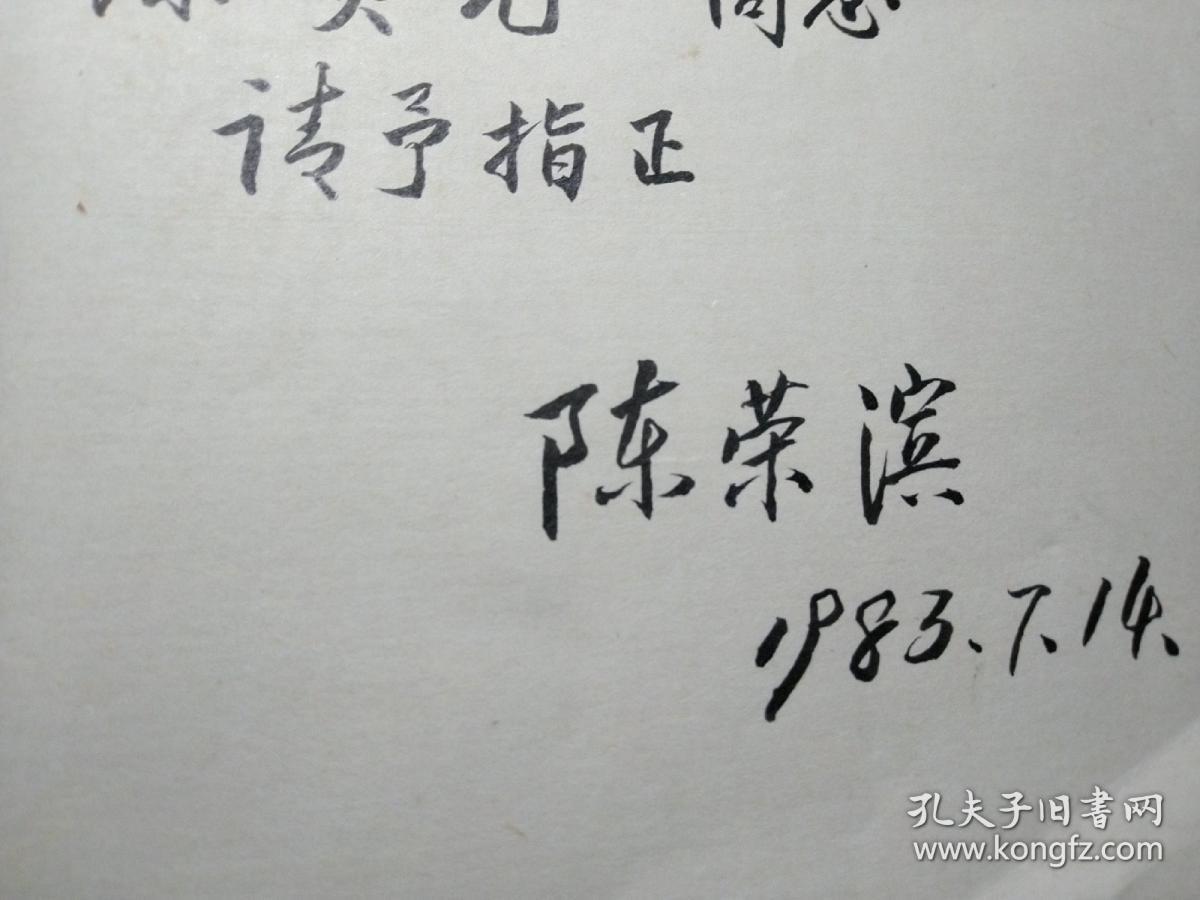 同志
请予指正
陈荣滨
1983.7.14.
孔夫子旧書网
www.kongfz.com